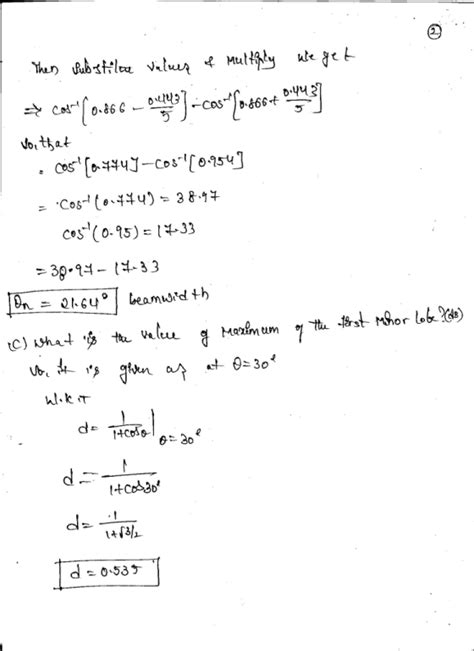 2
Then substitue values & Multiply we get
⇒ cos⁻¹[0.866 - 0.443/5] - cos⁻¹[0.866 + 0.443/5]
so, that
= cos⁻¹[0.774] - cos⁻¹[0.954]
= cos⁻¹(0.774) = 38.97
cos⁻¹(0.95) = 17.33
= 38.97 - 17.33
θn = 21.64° beamwidth
(C) what is the value of maximum of the first minor lobe
so, it is given as at θ=30°
W.K.T
d = 1/1+cosθ |θ=30°
d = 1/1+cos30°
d = 1/1+√3/2
d = 0.535